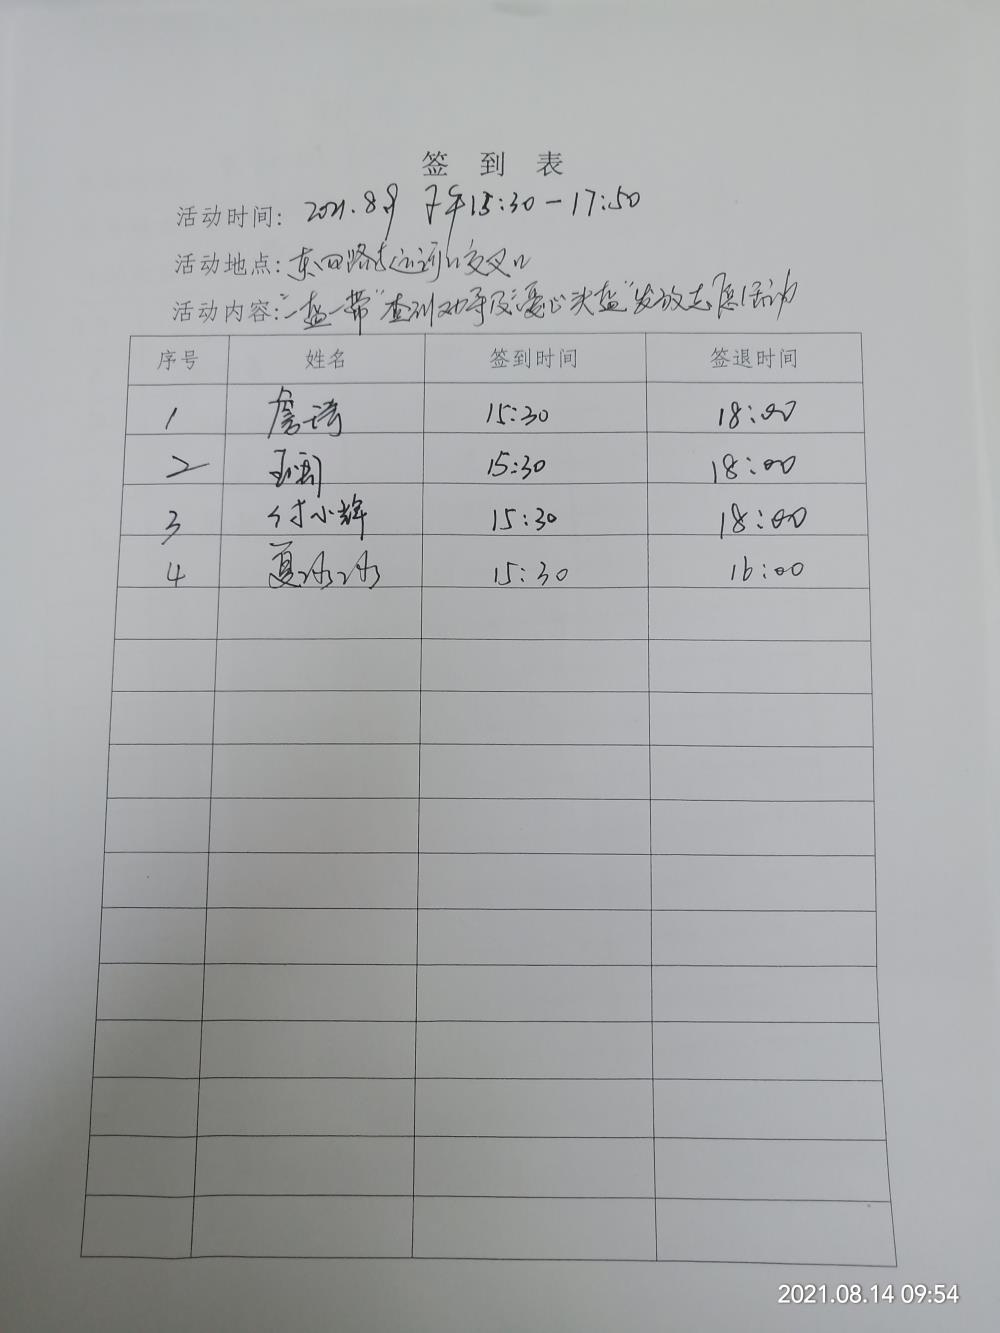 签 到 表
活动时间: 2021.8.9 下午15:30-17:50
活动地点: 东四路
活动内容: "一盔一带"查训劝导及 头盔"发放志愿活动
序号 姓名 签到时间 签退时间
1 15:30 18:00
2 15:30 18:00
3 付小辉 15:30 18:00
4 夏冰冰 15:30 16:00
2021.08.14 09:54